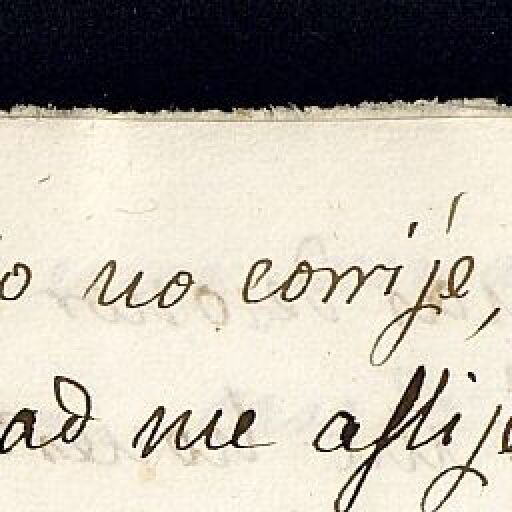 io no corrijé,
ad me aflije